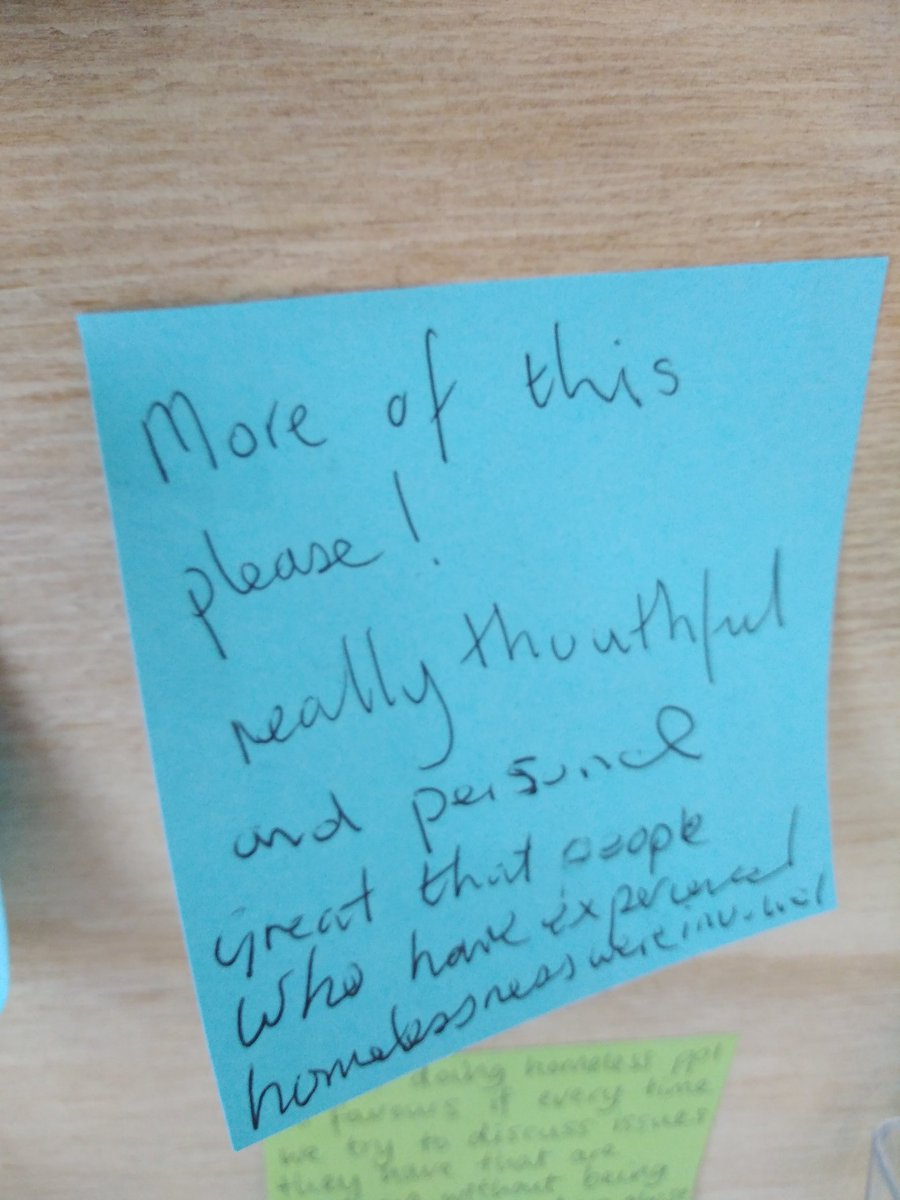 More of this
please!
really thouthful
and personal
Great that people
who have experienced
homelessness were involved
doing homeless ppl
favours if every time
we try to discuss issues
they have that are
without being